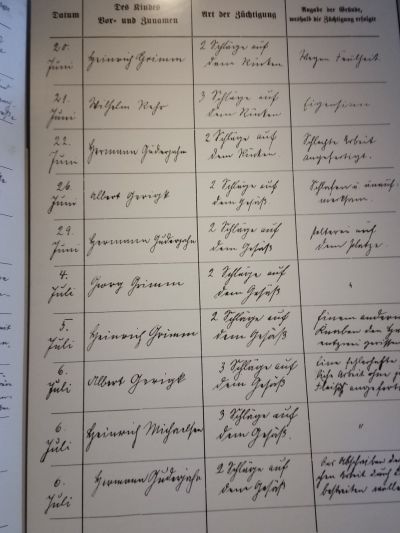 Datum
Des Kindes
Vor- und Zunamen
Art der Züchtigung
Angabe der Gründe,
weshalb die Züchtigung erfolgte
20.
Juni
Heinrich Grimm
2 Schläge auf
dem Rücken
Wegen Faulheit.
21.
Juni
Wilhelm Rehr
3 Schläge auf
dem Rücken
Eigensinn
22.
Juni
Hermann Guderjahn
2 Schläge auf
dem Rücken.
Schlechte Arbeit
angefertigt.
26.
Juni
Albert Gerigk
2 Schläge auf
dem Gesäß
Schlafen u. unauf-
merksam.
29.
Juni
Hermann Guderjahn
2 Schläge auf
dem Gesäß.
auf
dem Platze.
4.
Juli
Georg Grimm
2 Schläge auf
dem Gesäß
"
5.
Juli
Heinrich Grimm
2 Schläge auf
dem Gesäß
Einem andern
Knaben den
entzwei gerissen
6.
Juli
Albert Gerigk
3 Schläge auf
dem Gesäß
Eine fehlerhafte
Arbeit ohne
Fleiß angefert
6.
Juli
Heinrich Michaelsen
3 Schläge auf
dem Gesäß.
"
6.
Juli
Hermann Guderjahn
2 Schläge auf
dem Gesäß
Das Abschreiben
Arbeit
bestreiten wollen